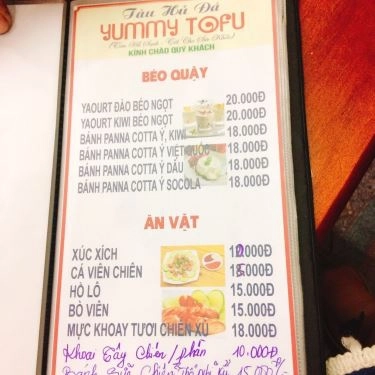 Tàu Hủ Đá
YUMMY TOFU
KÍNH CHÀO QUÝ KHÁCH
BÉO QUẬY
YAOURT ĐÀO BÉO NGỌT 20.000Đ
YAOURT KIWI BÉO NGỌT 20.000Đ
BÁNH PANNA COTTA Ý, KIWI 18.000Đ
BÁNH PANNA COTTA Ý VIỆT QUỐC 18.000Đ
BÁNH PANNA COTTA Ý DÂU 18.000Đ
BÁNH PANNA COTTA Ý SOCOLA 18.000Đ
ĂN VẶT
XÚC XÍCH
CÁ VIÊN CHIÊN
HỒ LÔ 15.000Đ
BÒ VIÊN 15.000Đ
MỰC KHOAY TƯƠI CHIÊN XÙ 18.000Đ
Khoai Tây Chiên / phần 10.000Đ
Bánh Chiên 15.000